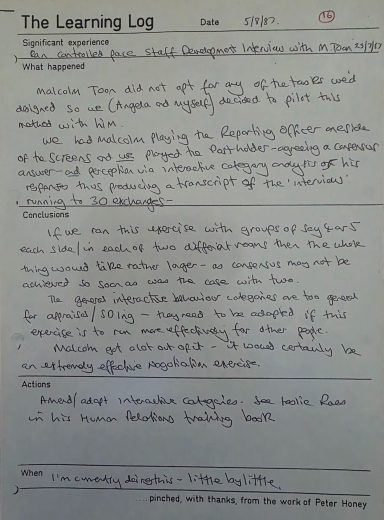 The Learning Log Date 5/8/87. 16
Significant experience
Ran controlled pace Staff Development Interview with M Toon 23/7/87
What happened
Malcolm Toon did not opt for any of the tasks we'd
designed so we (Angela and myself) decided to pilot this
method with him.
We had Malcolm playing the Reporting Officer one side
of the screens and we played the Postholder - agreeing a consensus
answer - and perception via interactive category analysis of his
responses thus producing a transcript of the 'interview'
running to 30 exchanges -
Conclusions
If we ran this exercise with groups of say 4 or 5
each side / in each of two different rooms then the whole
thing would take rather longer - as consensus may not be
achieved so soon as was the case with two.
The general interactive behaviour categories are too general
for appraisal / SDing - they need to be adapted if this
exercise is to run more effectively for other people.
Malcolm got a lot out of it - it would certainly be
an extremely effective negotiation exercise.
Actions
Amend/adapt interactive categories - see Leslie Raes
in his Human Relations training book
When I'm currently doing this - little by little.
....pinched, with thanks, from the work of Peter Honey